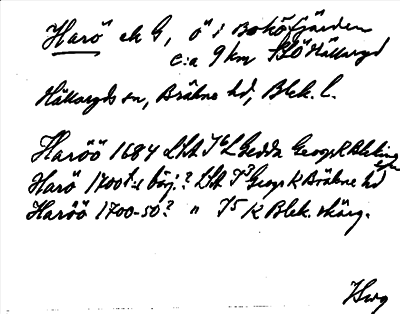 Harö ek G, ö i Boköfjärden
c:a 9 km SO Hällaryd
Hällaryds sn, Bräkne hd, Blek. l.
Haröö 1684 LAA Gedda Geogr K Bleking
Harö 1700 t:s börj.? Geogr K Bräkne hd
Haröö 1700-50? " K Blek. skärg.